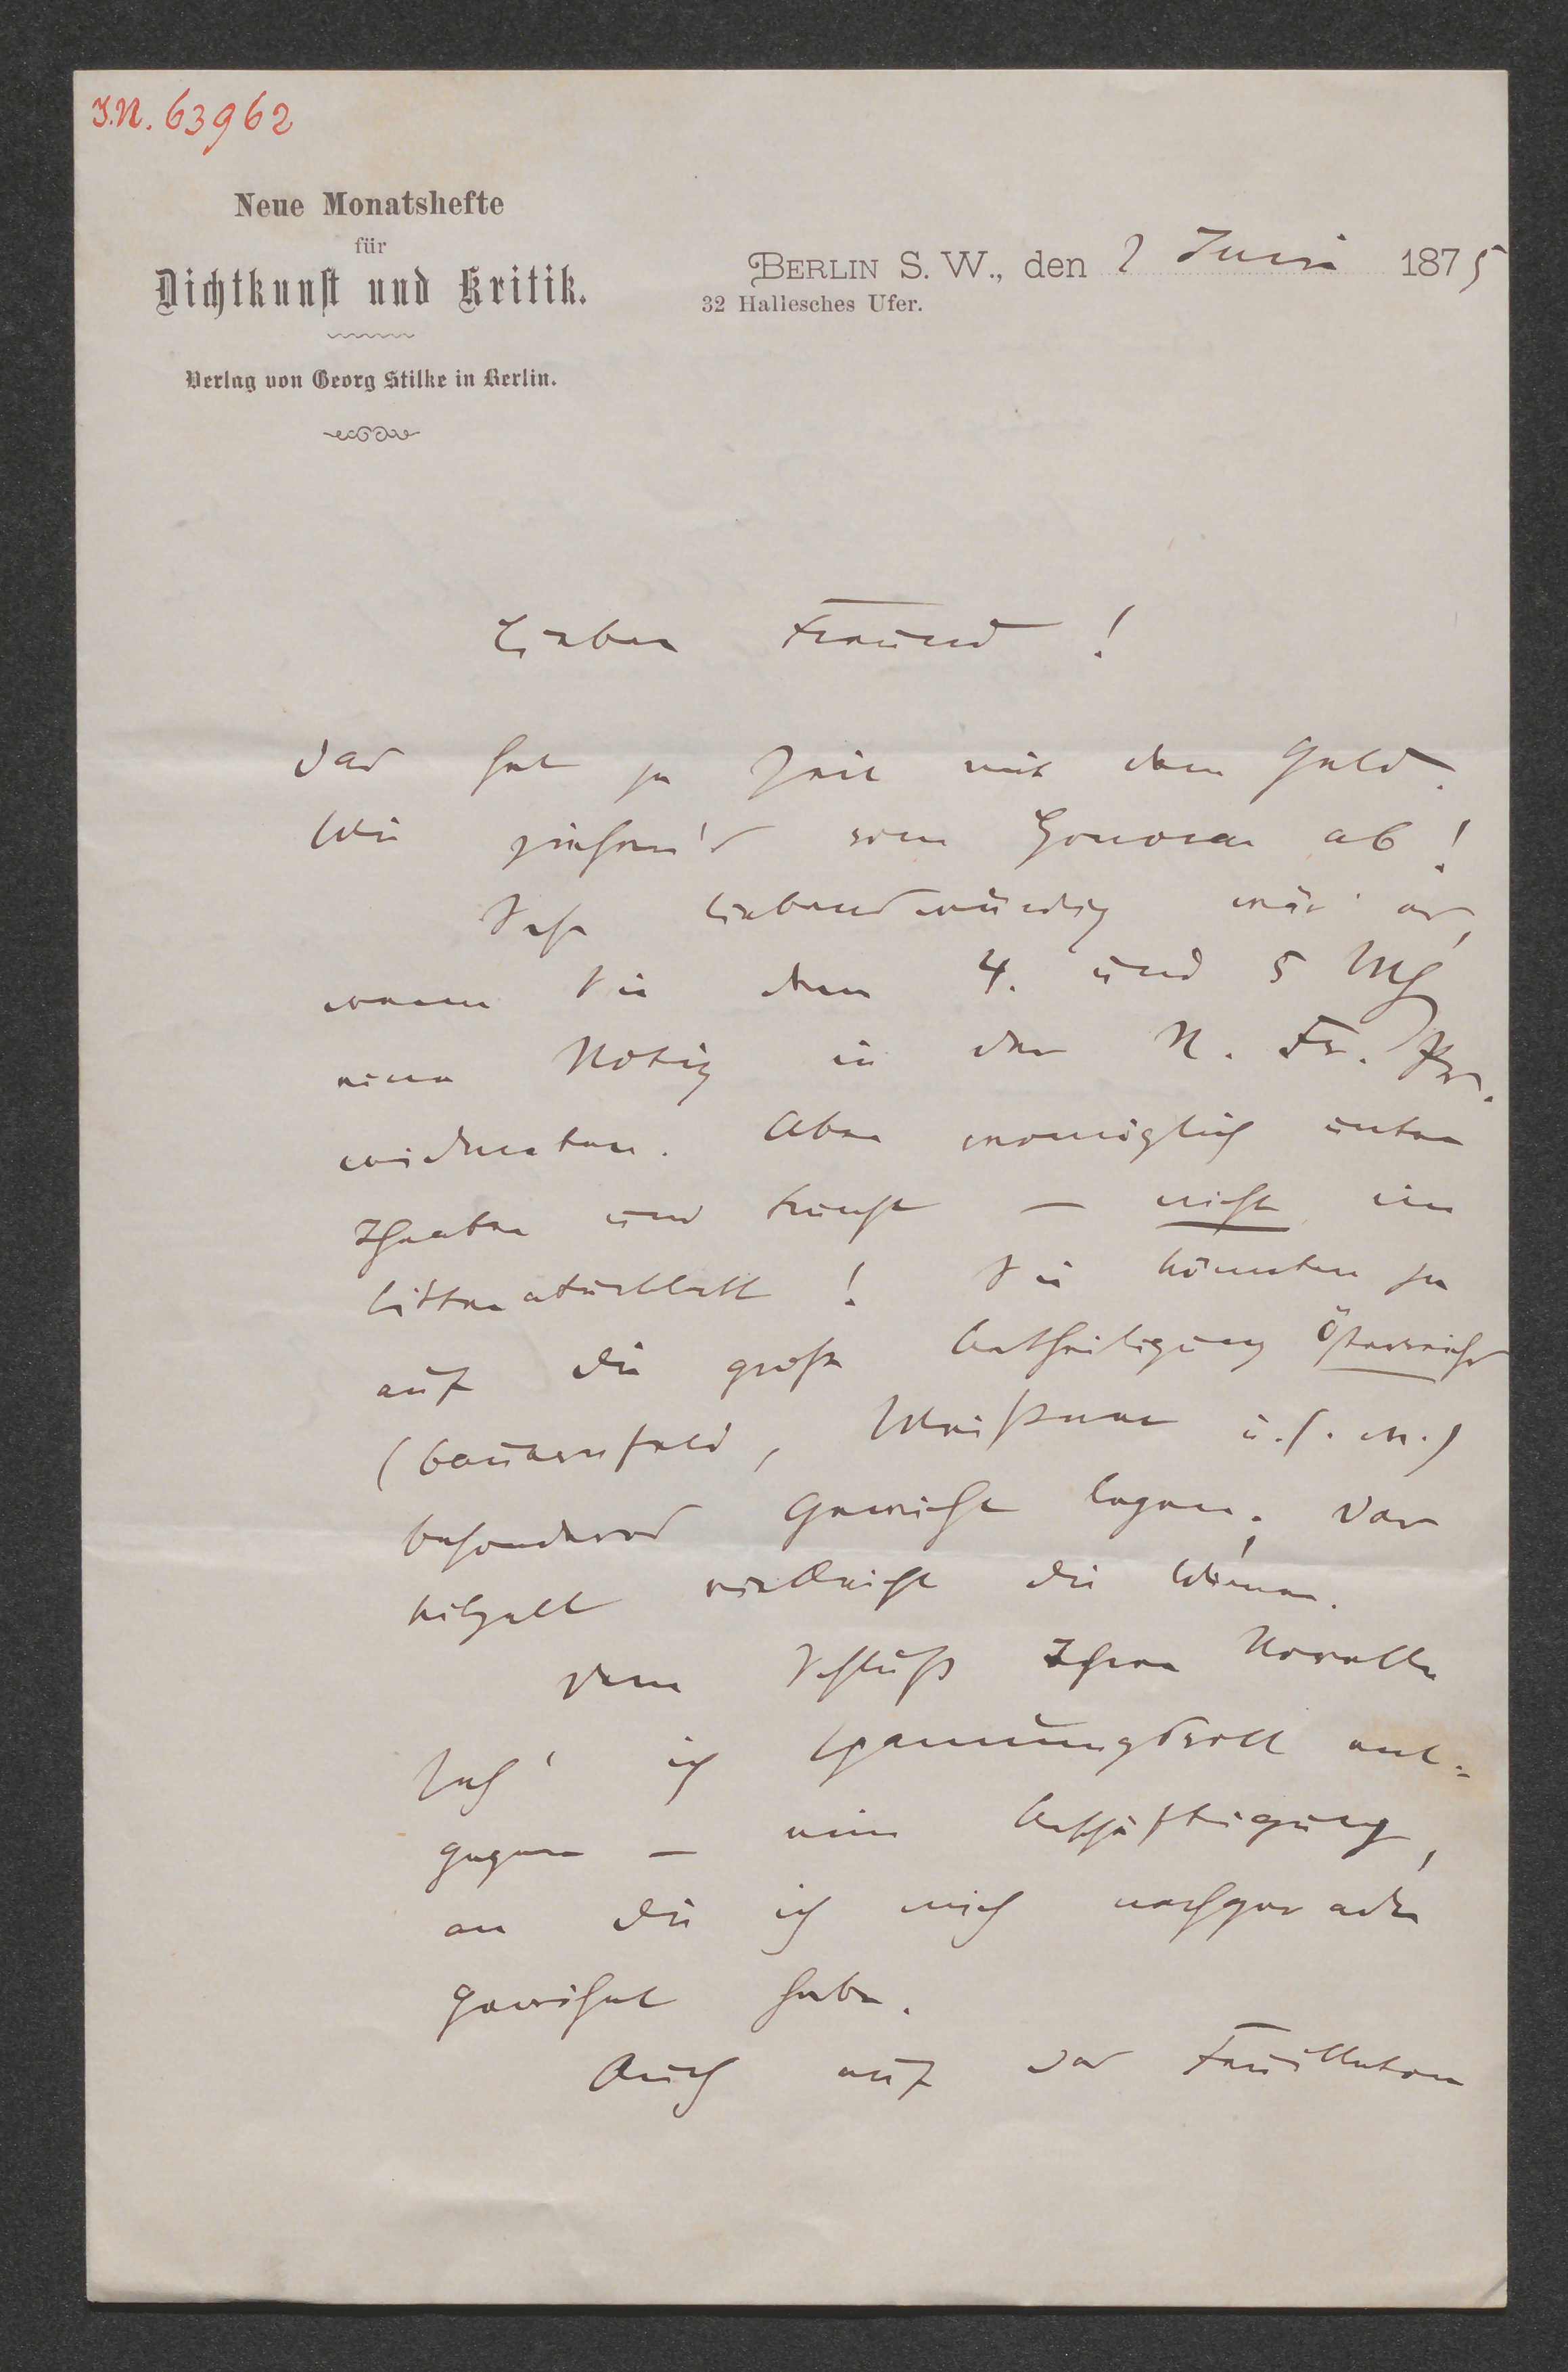 I.N. 63962
Neue Monatshefte
für
Dichtkunst und Kritik.
Verlag von Georg Stilke in Berlin.
BERLIN S. W., den 2 Juni 1875
32 Hallesches Ufer.
Lieber Freund!
Das hat ja Zeit mit dem Geld.
Wir ziehen's vom Honorar ab!
Sehr liebenswürdig wär' es,
wenn Sie dem 4. und 5 Hft
eine Notiz in der N. Fr. Pr.
widmeten. Aber womöglich unter
Theater und Kunst — nicht im
Litteraturblatt! Sie könnten ja
auf die große Betheiligung Österreichs
(Bauernfeld, Meißner u. s. w.)
besonderes Gewicht legen. Das
kitzelt vielleicht die Wiener.
Dem Schluß Ihrer Novelle
seh' ich spannungsvoll ent-
gegen — eine Beschäftigung,
an die ich mich nachgerade
gewöhnt habe.
Auch auf das Feuilleton